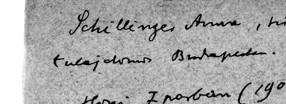 Schillinger Anna,
tulajdonos Budapesten.
Iparban (190